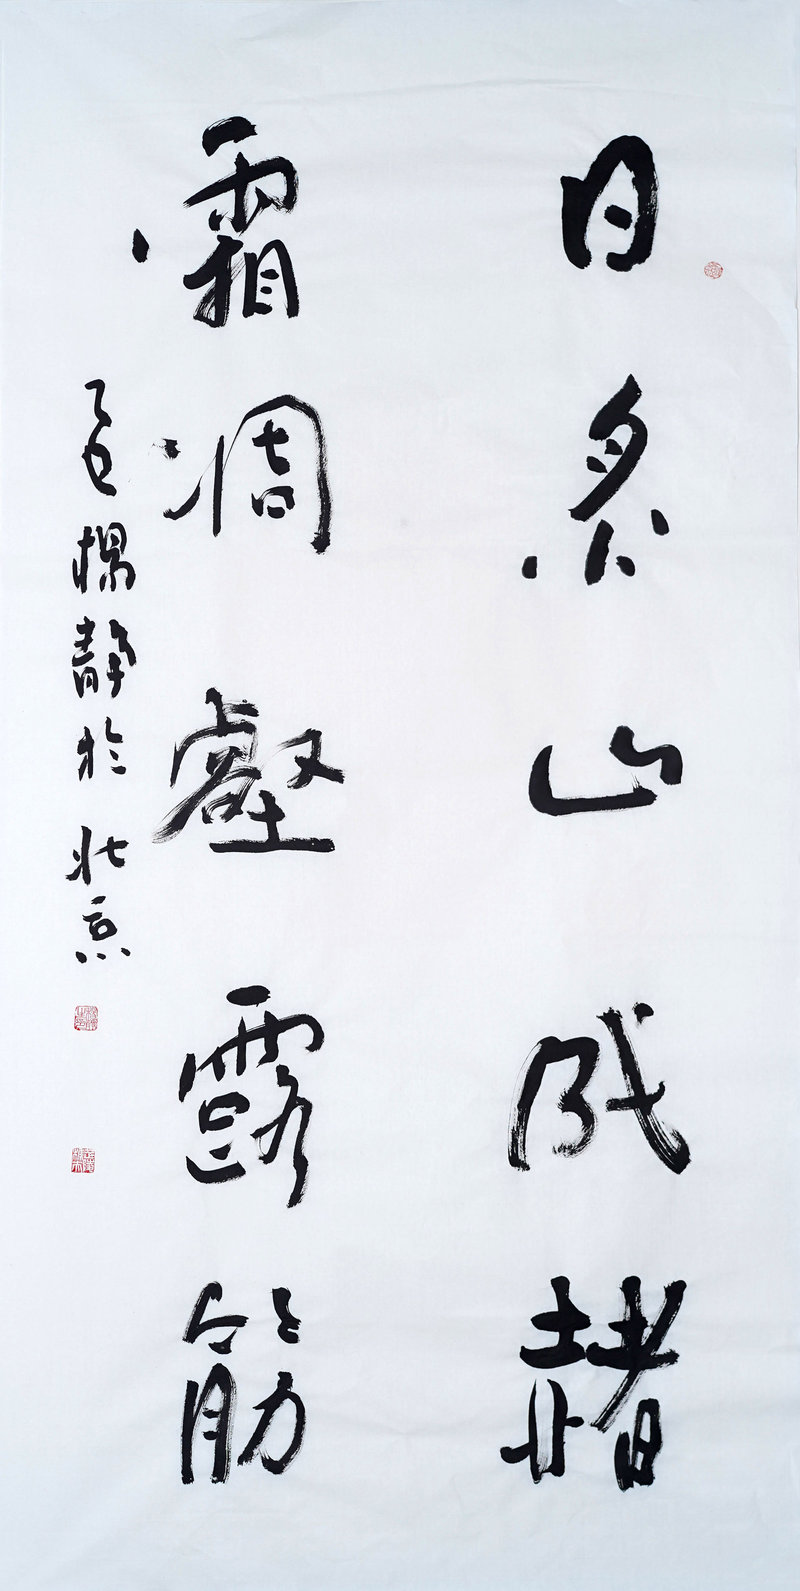 日炙山成赭
霜凋壑露筋
乙巳楊靜於北京